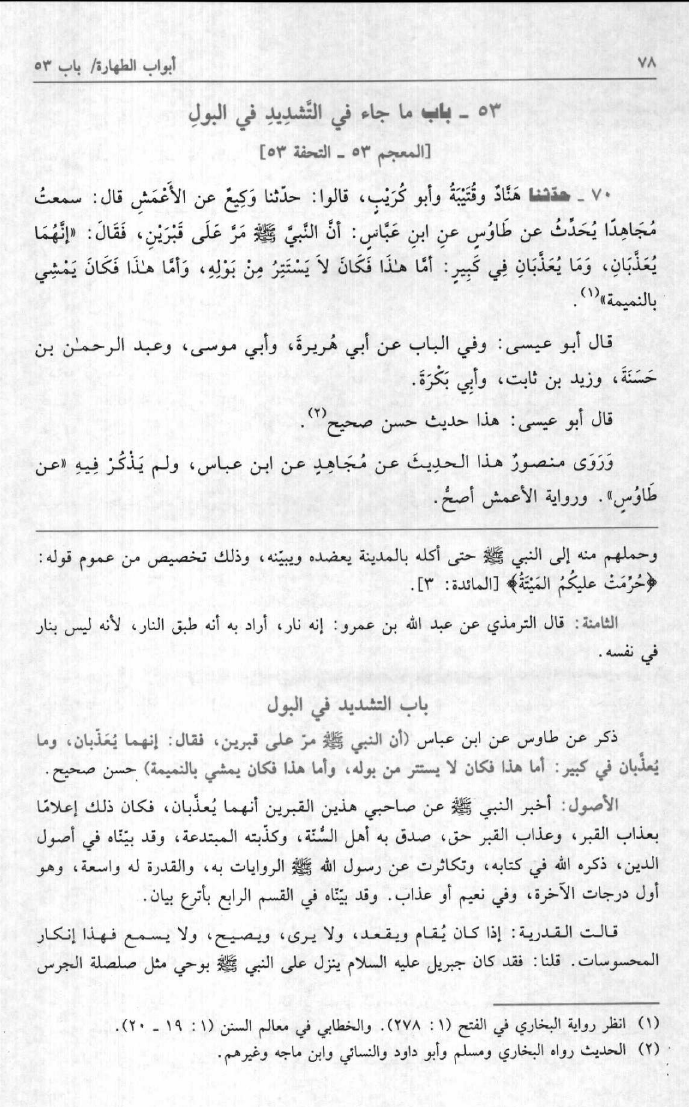 ٧٨
أبواب الطهارة/ باب ٥٣
٥٣ ـ باب ما جاء في التَّشدِيدِ في البولِ
[المعجم ٥٣ ـ التحفة ٥٣]
٧٠ ـ حدّثنا هَنَّادٌ وقُتَيْبَةُ وأبو كُرَيْبٍ، قالوا: حدّثنا وَكِيعٌ عن الأَعْمَشِ قال: سمعتُ
مُجَاهِدًا يُحَدِّثُ عن طَاوُسٍ عنِ ابنِ عَبَّاسٍ: أنَّ النبيَّ ﷺ مَرَّ عَلَى قَبْرَيْنِ، فَقَالَ: «إنَّهُمَا
يُعَذَّبَانِ، وَمَا يُعَذَّبَانِ فِي كَبِيرٍ: أمَّا هٰذَا فَكَانَ لاَ يَسْتَتِرُ مِنْ بَوْلِهِ، وَأمَّا هٰذَا فَكَانَ يَمْشِي
بالنميمة»(١).
قال أبو عيسى: وفي الباب عن أبي هُريرةَ، وأبي موسى، وعبد الرحمـٰن بن
حَسَنَةَ، وزيد بن ثابت، وأبِي بَكْرَةَ.
قال أبو عيسى: هذا حديث حسن صحيح(٢).
وَرَوَى منصورٌ هذا الحديثَ عن مُجَاهِدٍ عن ابن عباس، ولم يَذْكُرْ فِيهِ «عن
طَاوُسٍ». ورواية الأعمش أصحُّ.
وحملهم منه إلى النبي ﷺ حتى أكله بالمدينة يعضده ويبيّنه، وذلك تخصيص من عموم قوله:
﴿حُرِّمَتْ عليكُمُ المَيْتَةُ﴾ [المائدة: ٣].
الثامنة: قال الترمذي عن عبد الله بن عمرو: إنه نار، أراد به أنه طبق النار، لأنه ليس بنار
في نفسه.
باب التشديد في البول
ذكر عن طاوس عن ابن عباس (أن النبي ﷺ مرّ على قبرين، فقال: إنهما يُعَذّبان، وما
يُعذَّبان في كبير: أما هذا فكان لا يستتر من بوله، وأما هذا فكان يمشي بالنميمة) حسن صحيح.
الأصول: أخبر النبي ﷺ عن صاحبي هذين القبرين أنهما يُعذَّبان، فكان ذلك إعلامًا
بعذاب القبر، وعذاب القبر حق، صدق به أهل السُّنّة، وكذّبته المبتدعة، وقد بيّنّاه في أصول
الدين، ذكره الله في كتابه، وتكاثرت عن رسول الله ﷺ الروايات به، والقدرة له واسعة، وهو
أول درجات الآخرة، وفي نعيم أو عذاب. وقد بيّنّاه في القسم الرابع بأترع بيان.
قالت القدرية: إذا كان يُقام ويقعد، ولا يرى، ويصيح، ولا يسمع فهذا إنكار
المحسوسات. قلنا: فقد كان جبريل عليه السلام ينزل على النبي ﷺ بوحي مثل صلصلة الجرس
(١) انظر رواية البخاري في الفتح (١: ٢٧٨). والخطابي في معالم السنن (١: ١٩ ـ ٢٠).
(٢) الحديث رواه البخاري ومسلم وأبو داود والنسائي وابن ماجه وغيرهم.